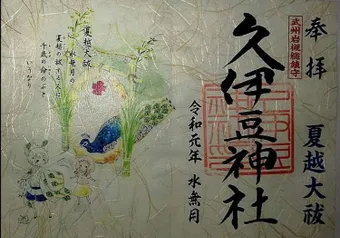 奉拝
夏越大祓
武州岩槻総鎮守
久伊豆神社
令和元年 水無月
夏越大祓
水無月の
夏越の祓する人は
千歳の命のぶと
いうなり